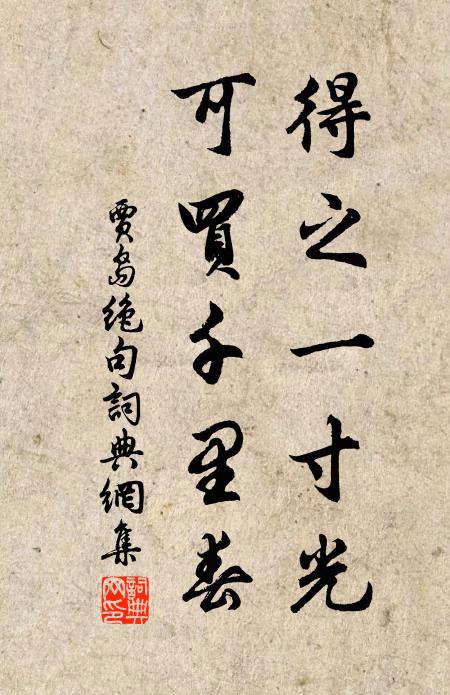 得之一寸光
可買千里春
賈島絶句詞典網集
詞典網印